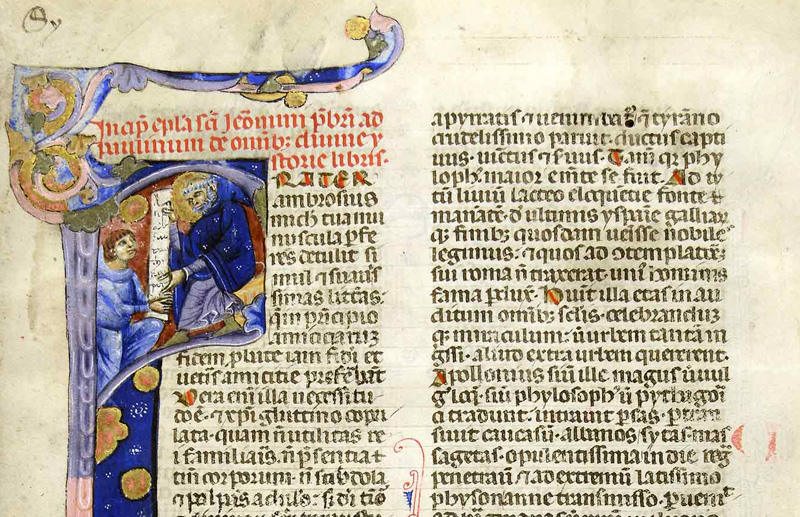 Incip epla scī Jeronimi pbrī ad
paulinum de omib; diuine y
storie libris.
RATER
ambrosius
michi tua mu
nuscula pfe
rens detulit si
mul et suaūis
simas litteras:
que principio
amiciciarum
fidem probate iam fidei et
ueteris amicitie preferebant
Uera enim illa necessitu
do ē. et xpi gluttino copu
lata. quam ñ utilitas re
i familiaris. ñ pñtia
tm̄ corporum. ñ subdola
et palpans adulo: si di tīo
apyratis et uenundatus et tyranno
crudelissimo paruit. ductus capti
uus. uinctus et seruus. Tam̄ qr phy
losoph maior ementē se fuit. Ad ty
tum liuium lacteo eloquetie fonte
manatē. de ultimis yspanie galliar
q finib; quosdam uenisse nobiles
legimus: et quos ad 9templatōeȝ
sui roma ñ traxerat. unī hominis
fama pduxit. Habuit illa etas in au
ditum omib; seclis. celebrandūq;
q; miraculum: ut urbem tantā in
gressi. aliud extra urbem quererent.
Apollonius siue ille magus ut uul
g loqr. siue phylosoph ut pytagorici
tradunt. intrauit psas. ptransi
uit caucasū. albanos. sytas. mas
sagetas. opulentissima indie regna
penetrauit et ad extremū latissimo
physon amne transmisso. puenit